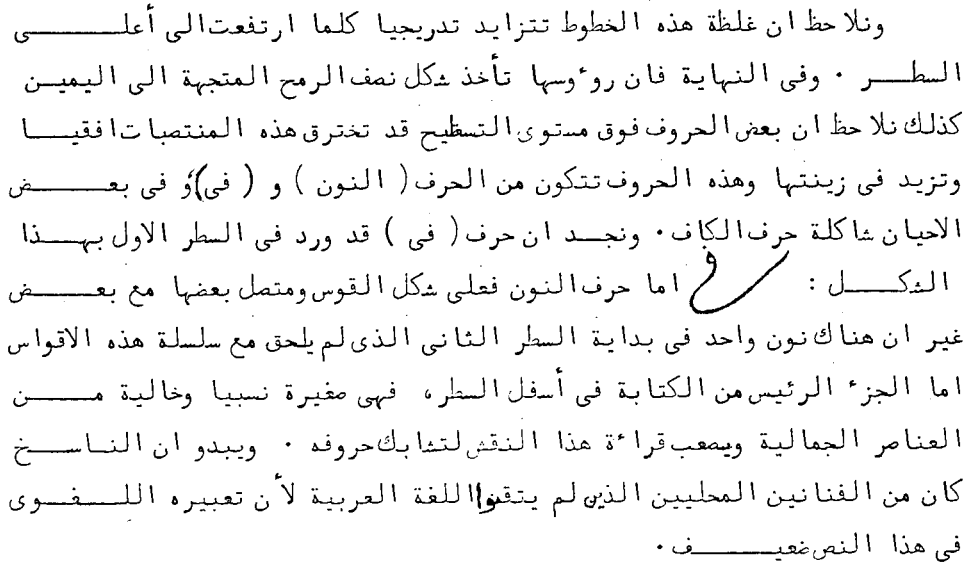 ونلاحظ ان غلظة هذه الخطوط تتزايد تدريجيا كلما ارتفعت الى أعلى
السطر . وفى النهاية فان روءوسها تأخذ شكل نصف الرمح المتجهة الى اليمين
كذلك نلاحظ ان بعض الحروف فوق مستوى التسطيح قد تخترق هذه المنتصبات افقيا
وتزيد فى زينتها وهذه الحروف تتكون من الحرف ( النون ) و ( فى) و فى بعض
الاحيان شاكلة حرف الكاف . ونجد ان حرف ( فى ) قد ورد فى السطر الاول بهذا
الشكل : فى اما حرف النون فعلى شكل القوس ومتصل بعضها مع بعض
غير ان هناك نون واحد فى بداية السطر الثانى الذى لم يلحق مع سلسلة هذه الاقواس
اما الجزء الرئيس من الكتابة فى أسفل السطر ، فهى صغيرة نسبيا وخالية من
العناصر الجمالية ويصعب قراءة هذا النقش لتشابك حروفه . ويبدو ان الناسخ
كان من الفنانين المحليين الذين لم يتقنوا اللغة العربية لأن تعبيره اللغوى
فى هذا النص ضعيف .